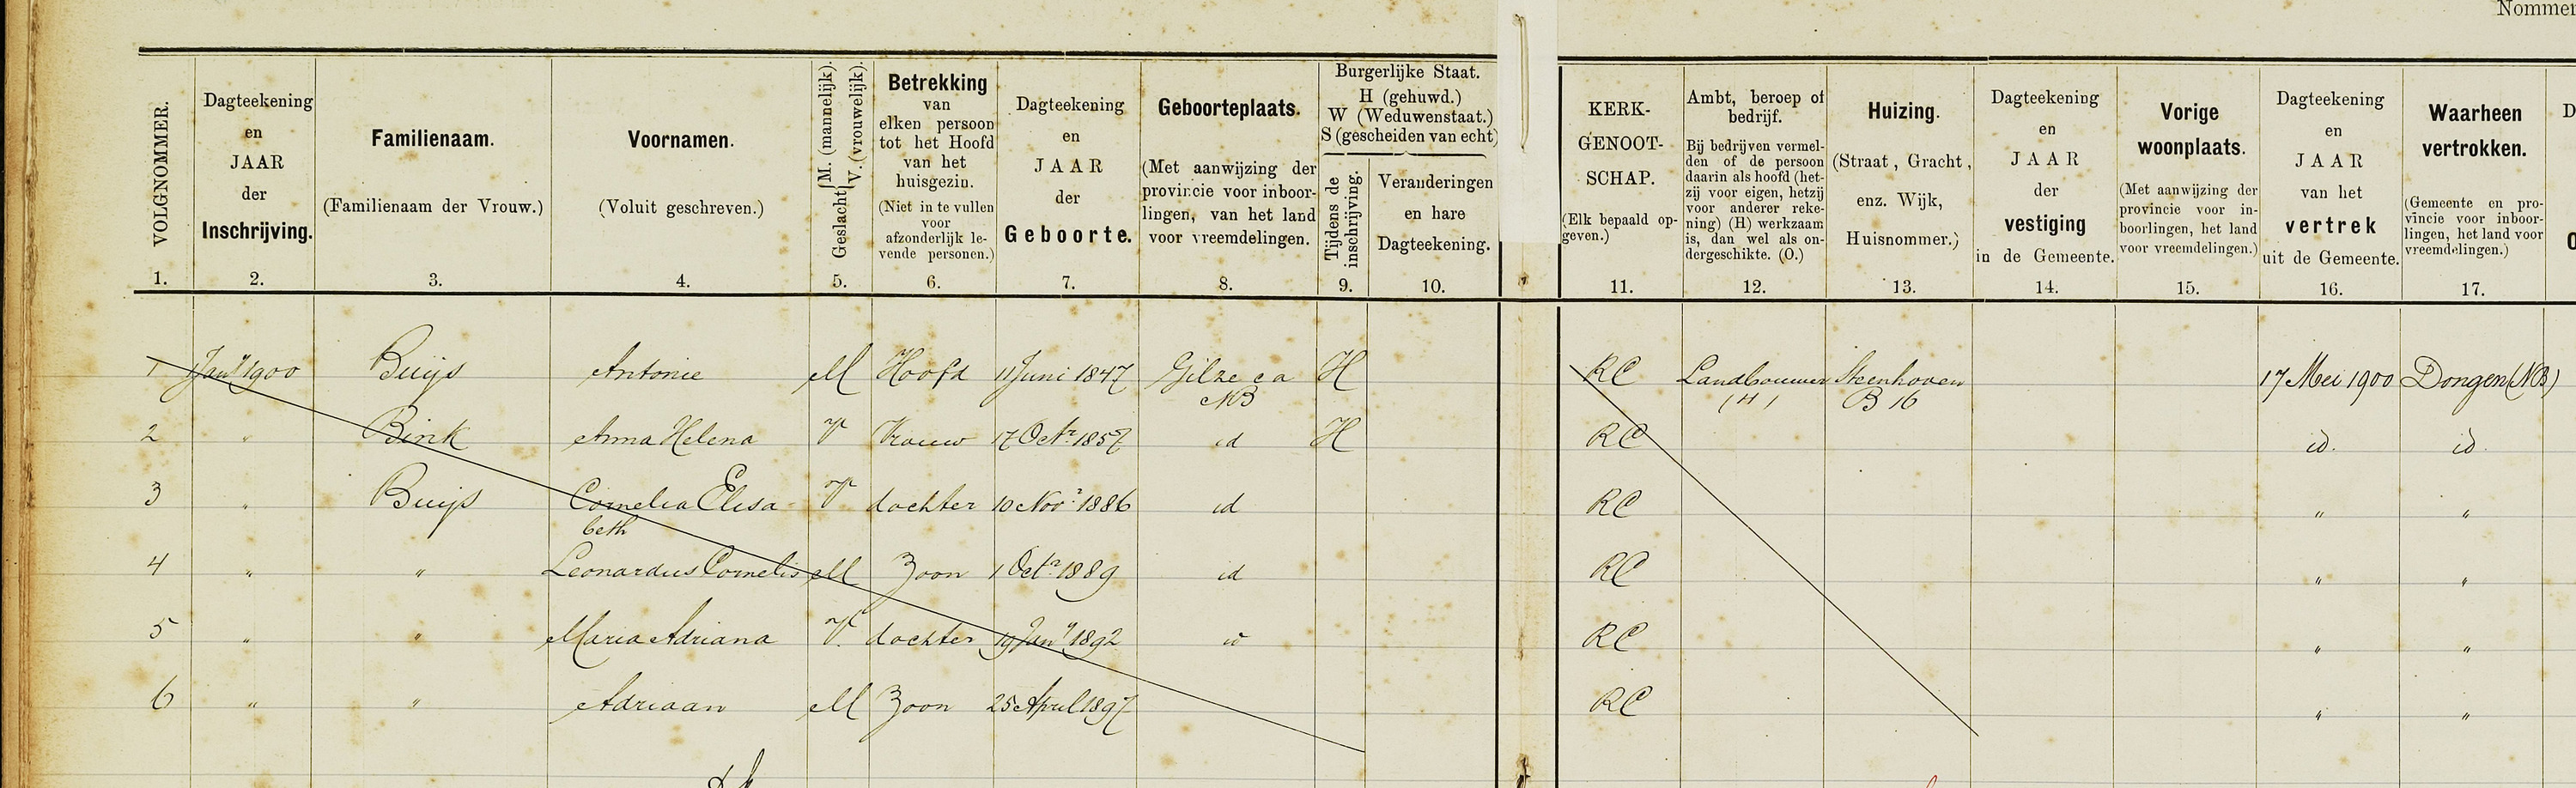 Nommer
VOLGNOMMER.
1.
Dagteekening
en
JAAR
der
Inschrijving.
2.
Familienaam.
(Familienaam der Vrouw.)
3.
Voornamen.
(Voluit geschreven.)
4.
Geslacht
M. (mannelijk).
V. (vrouwelijk).
5.
Betrekking
van
elken persoon
tot het Hoofd
van het
huisgezin.
(Niet in te vullen
voor
afzonderlijk le-
vende personen.)
6.
Dagteekening
en
JAAR
der
Geboorte.
7.
Geboorteplaats.
(Met aanwijzing der
provincie voor inboor-
lingen, van het land
voor vreemdelingen.
8.
Burgerlijke Staat.
H (gehuwd.)
W (Weduwenstaat.)
S (gescheiden van echt)
Tijdens de
inschrijving.
9.
Veranderingen
en hare
Dagteekening.
10.
KERK-
GENOOT-
SCHAP.
(Elk bepaald op-
geven.)
11.
Ambt, beroep of
bedrijf.
Bij bedrijven vermel-
den of de persoon
daarin als hoofd (het-
zij voor eigen, hetzij
voor anderer reke-
ning) (H) werkzaam
is, dan wel als on-
dergeschikte. (O.)
12.
Huizing.
(Straat, Gracht,
enz. Wijk,
Huisnommer.)
13.
Dagteekening
en
JAAR
der
vestiging
in de Gemeente.
14.
Vorige
woonplaats.
(Met aanwijzing der
provincie voor in-
boorlingen, het land
voor vreemdelingen.)
15.
Dagteekening
en
JAAR
van het
vertrek
uit de Gemeente.
16.
Waarheen
vertrokken.
(Gemeente en pro-
vincie voor inboor-
lingen, het land voor
vreemdelingen.)
17.
1 1 Jany 1900 Buijs Antonie M Hoofd 11 Juni 1847 Gilze ca H RC Landbouwer Steenhoven 17 Mei 1900 Dongen (NB)
NB (H) B 16
2 " Bink Anna Helena V Vrouw 17 Octr 1857 id H RC id. id.
3 " Buijs Cornelia Elisa- V dochter 10 Novr 1886 id RC " "
beth
4 " " Leonardus Cornelis M Zoon 1 Octr 1889 id RC " "
5 " " Maria Adriana V. dochter 19 Jany 1892 id RC " "
6 " " Adriaan M Zoon 25 April 1897 RC " "